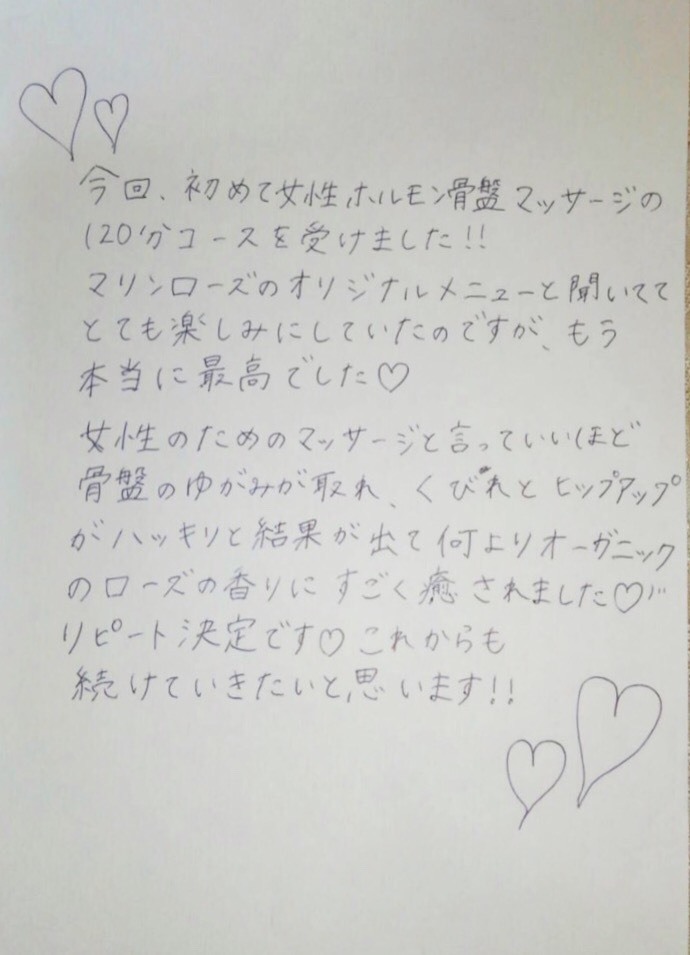 今回、初めて女性ホルモン骨盤マッサージの
120分コースを受けました!!
マリンローズのオリジナルメニューと聞いてて
とても楽しみにしていたのですが、もう
本当に最高でした♡
女性のためのマッサージと言っていいほど
骨盤のゆがみが取れ、くびれとヒップアップ
がハッキリと結果が出て何よりオーガニック
のローズの香りにすごく癒されました♡!!
リピート決定です♡これからも
続けていきたいと思います!!